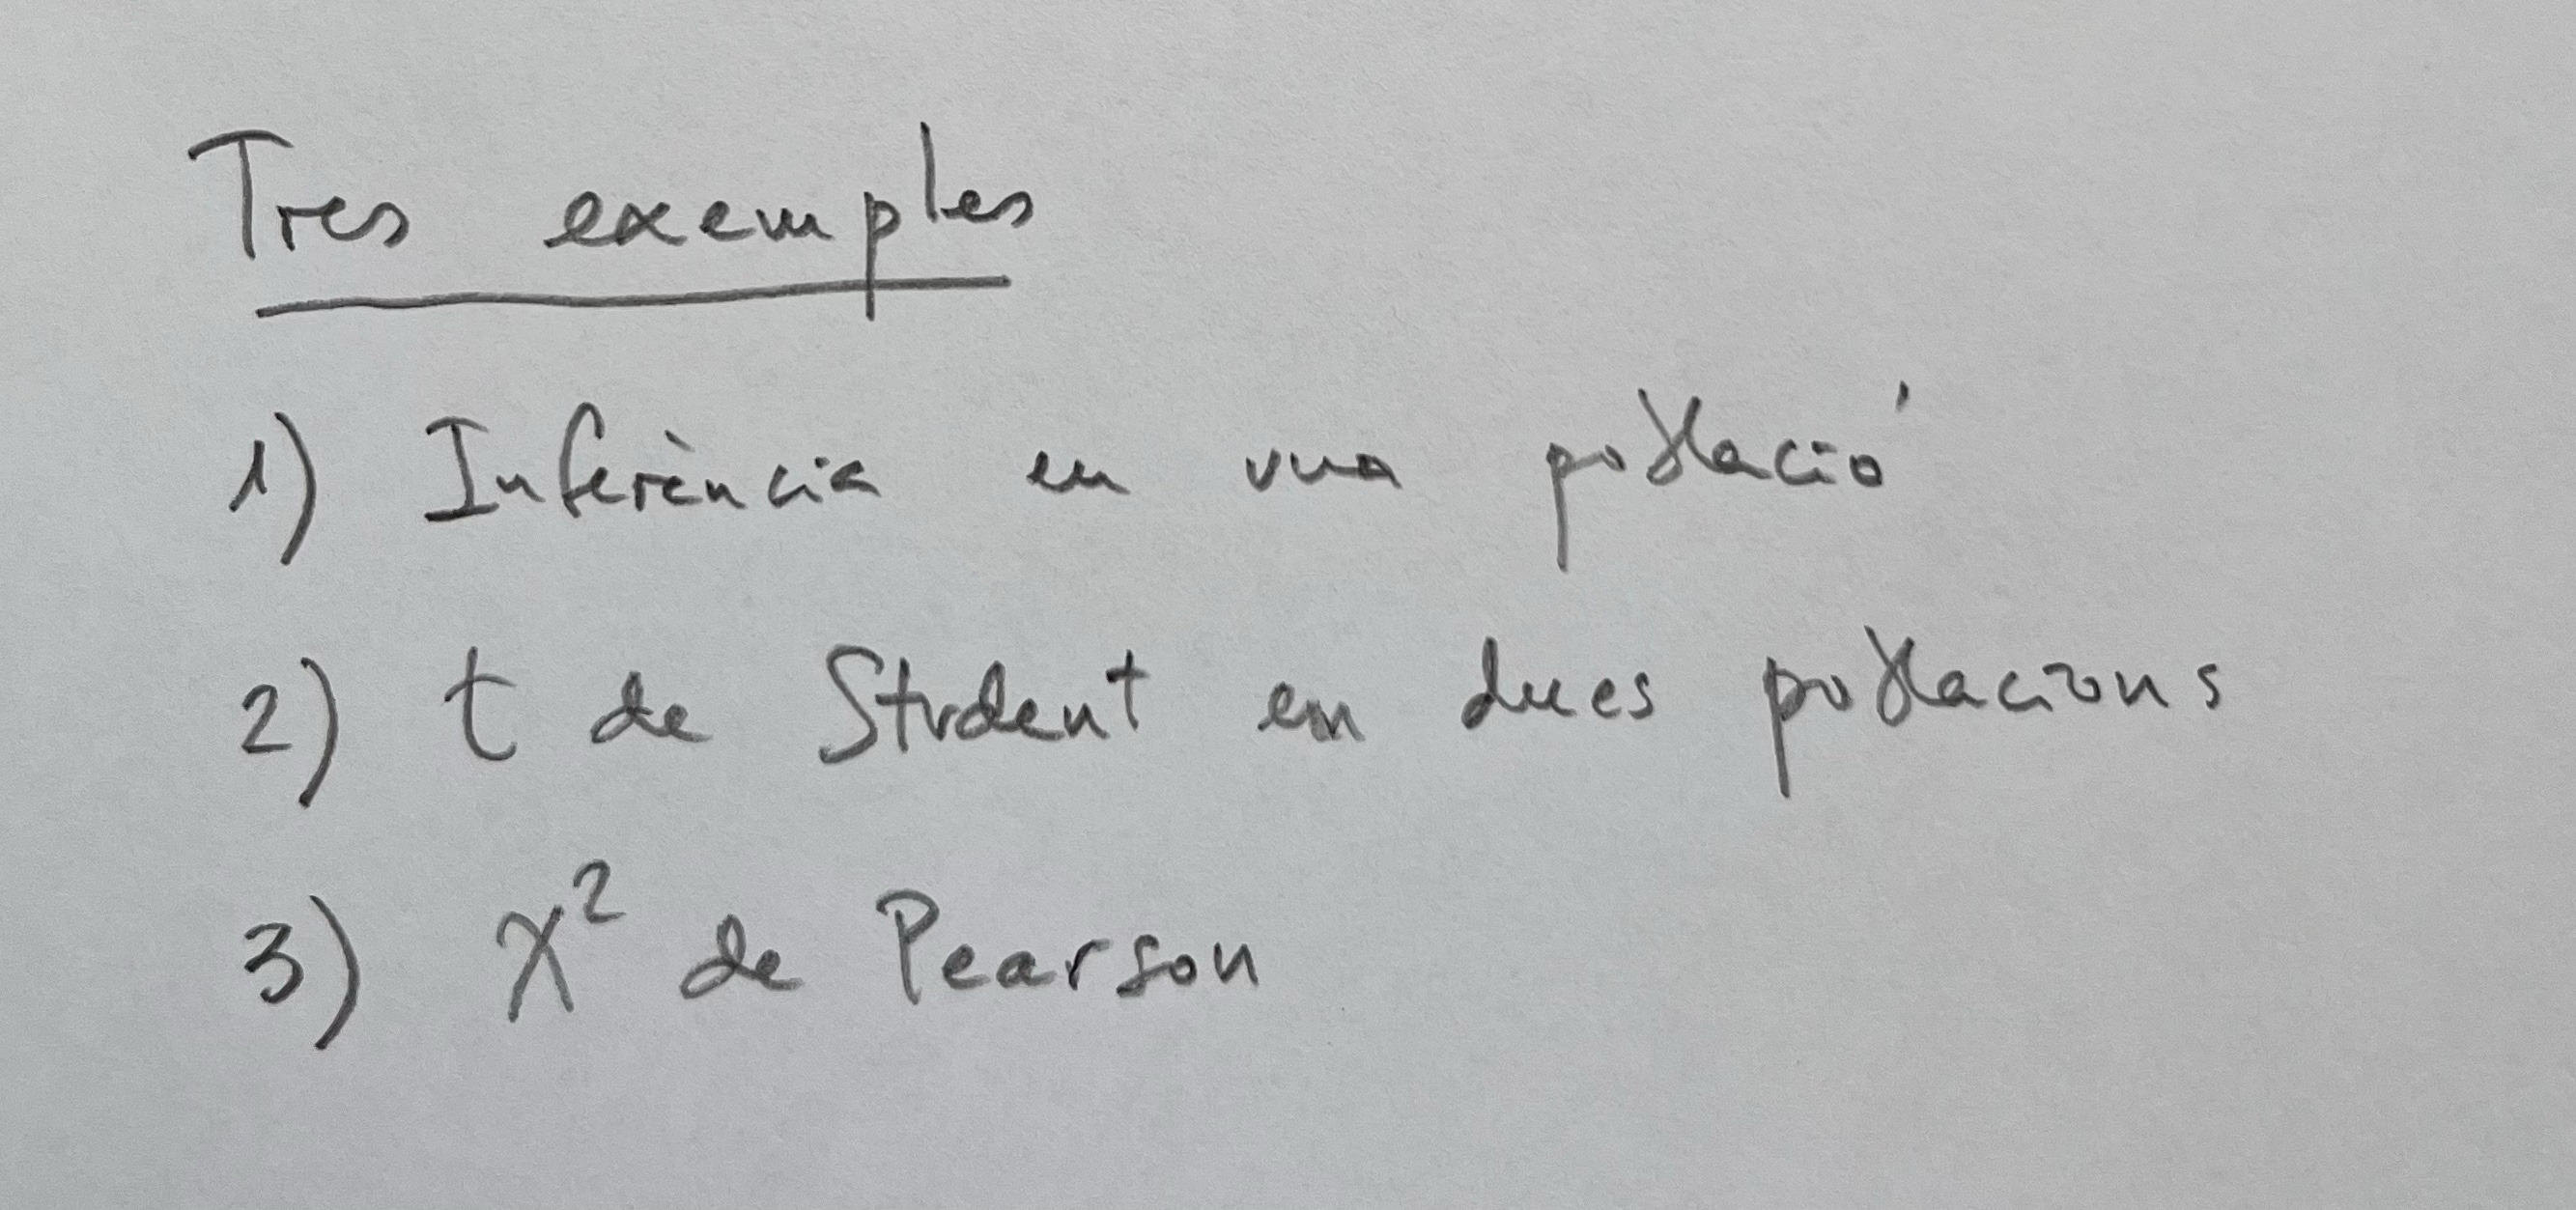 Tres exemples
1) Inferència en una població
2) t de Student en dues poblacions
3) χ² de Pearson